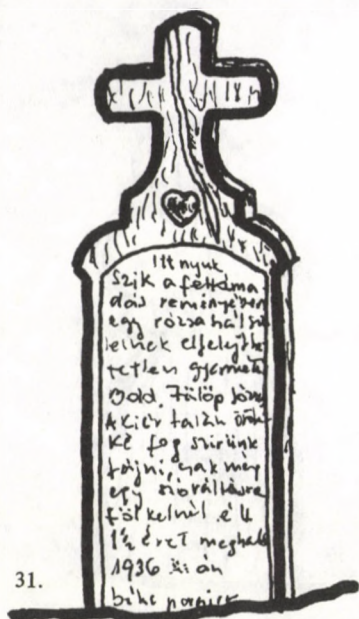 Itt nyuk
szik a feltáma
dás reményében
egy rózsa hálsü
leinek elfelejthe
tetlen gyermek
Odd. Fülöp Józs
Akiér talán örök
ké fog szivünk
fájni, csak még
egy szóváltásra
fölkelnél. élt
1½ évet meghalt
1936 án
béke poraira
31.